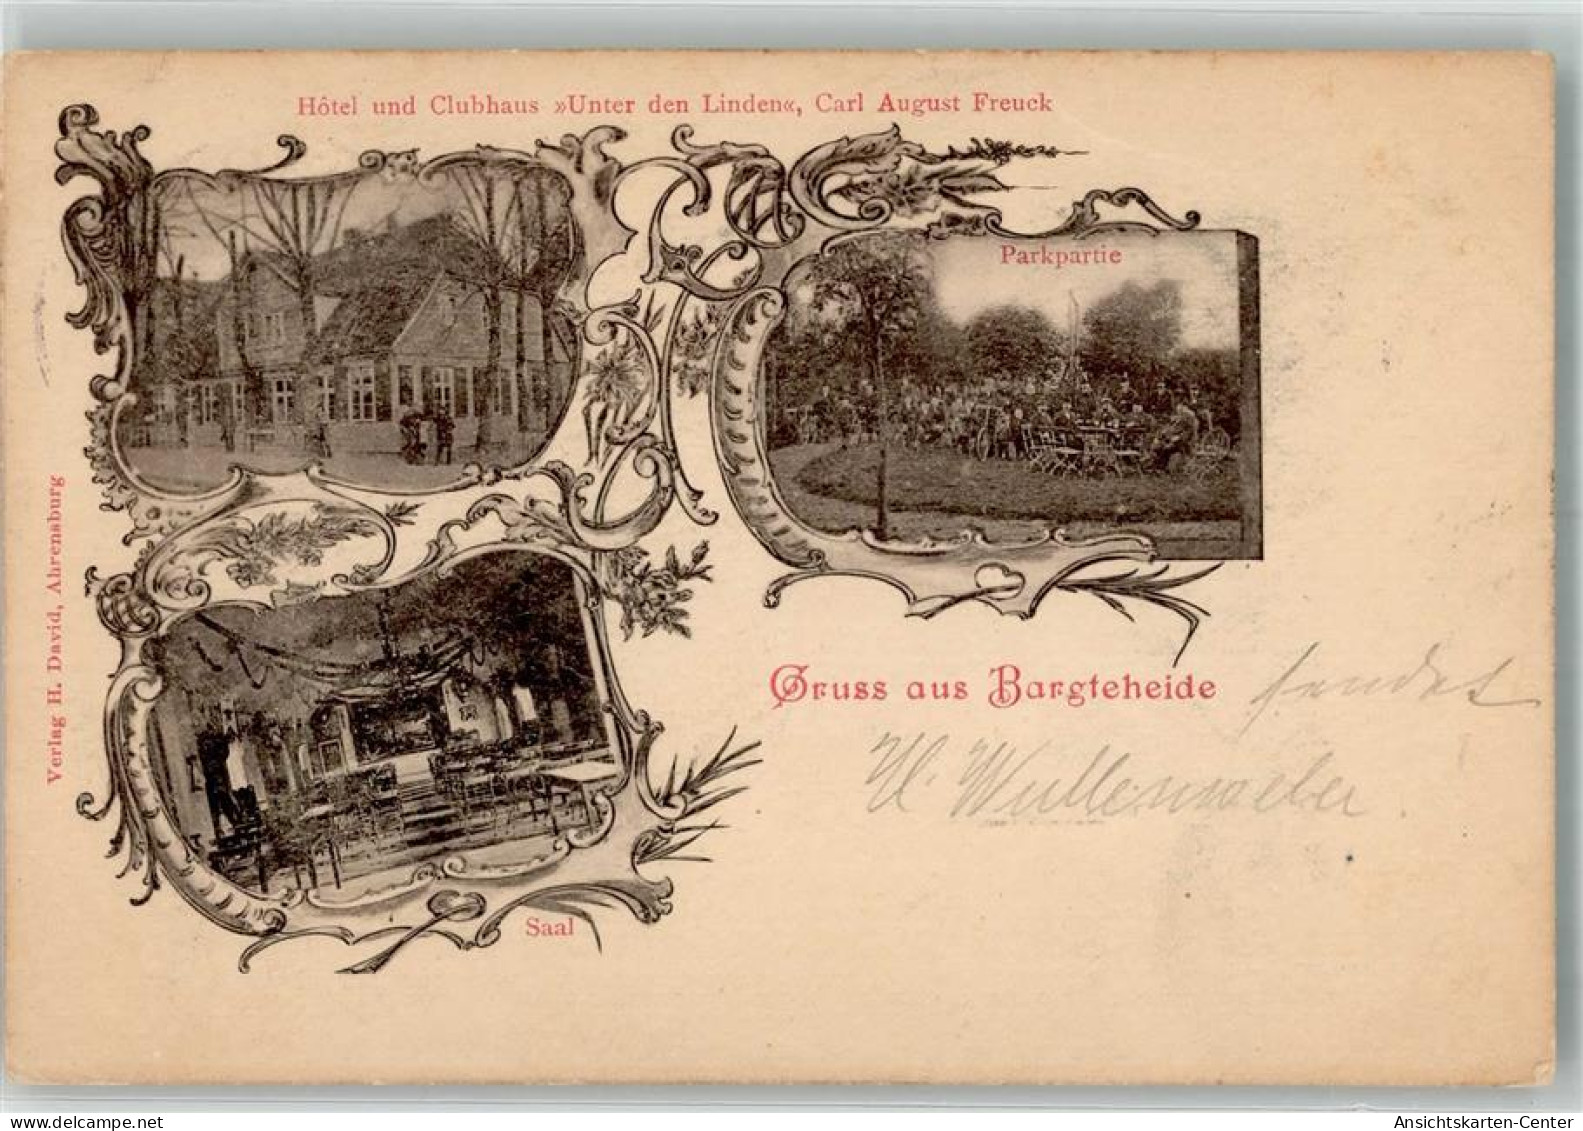 Hôtel und Clubhaus »Unter den Linden«, Carl August Freuck
Parkpartie
Verlag H. David, Ahrensburg
Gruss aus Bargteheide
sendet
W. Wullenweber.
Saal
www.delcampe.net
Ansichtskarten-Center